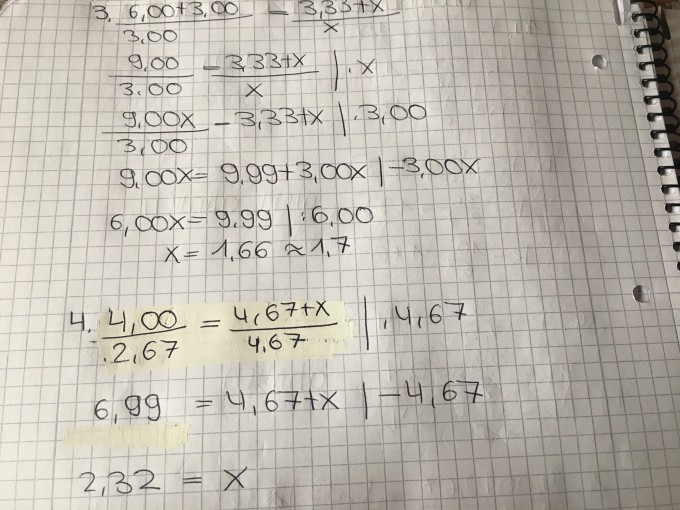 3. 6,00+3,00 / 3,00 = 3,33+x / x
9,00 / 3,00 = 3,33+x / x | · x
9,00x / 3,00 = 3,33+x | · 3,00
9,00x = 9,99+3,00x | -3,00x
6,00x = 9,99 | : 6,00
x = 1,66 ≈ 1,7
4. 4,00 / 2,67 = 4,67+x / 4,67 | · 4,67
6,99 = 4,67+x | -4,67
2,32 = x